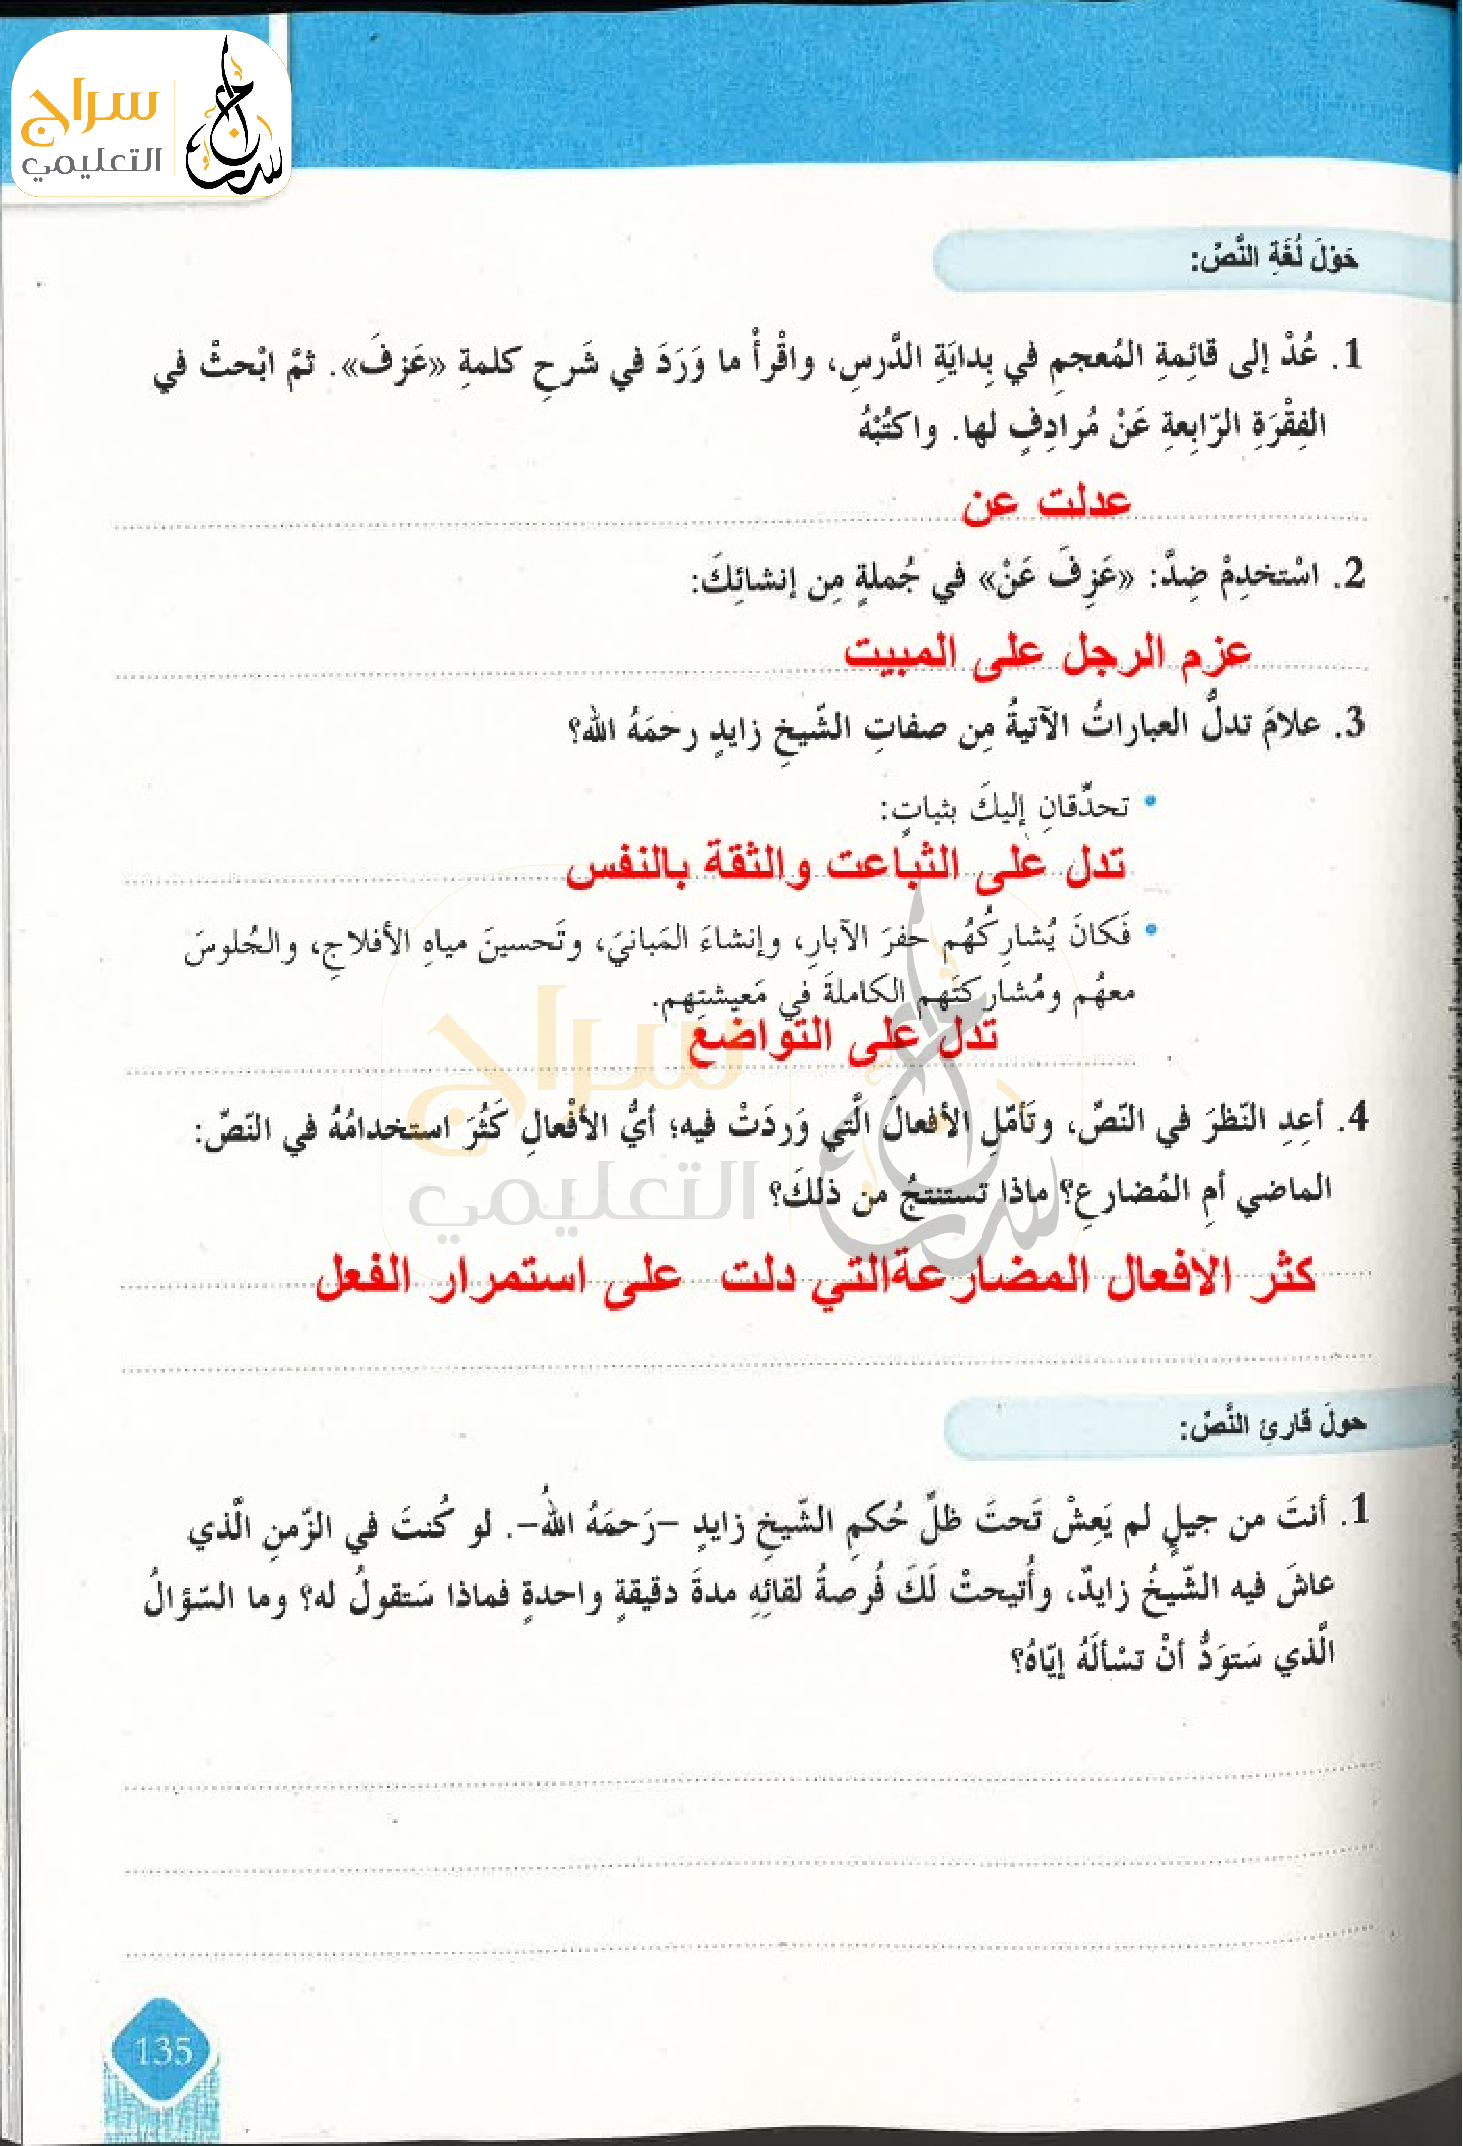 سراج
التعليمي
حَوْلَ لُغَةِ النَّصِّ:
1. عُدْ إلى قائِمةِ المُعجمِ في بِدايَةِ الدَّرسِ، واقْرأْ ما وَرَدَ في شَرحِ كلمةِ «عَزفَ». ثمَّ ابْحثْ في
الفِقْرَةِ الرّابِعةِ عَنْ مُرادِفٍ لها. واكتُبْهُ
عدلت عن
2. اسْتخدِمْ ضِدَّ: «عَزِفَ عَنْ» في جُملةٍ مِن إنشائِكَ:
عزم الرجل على المبيت
3. علامَ تدلُّ العباراتُ الآتيةُ مِن صفاتِ الشّيخِ زايدٍ رحمَهُ الله؟
• تحدّقانِ إليكَ بثباتٍ:
تدل على الثباعت والثقة بالنفس
• فَكانَ يُشارِكُهُم حفرَ الآبارِ، وإنشاءَ المَبانيَ، وتَحسينَ مياهِ الأفلاجِ، والجُلوسَ
معهُم ومُشاركتَهم الكاملةَ في مَعيشتِهم.
تدل على التواضع
4. أعِدِ النّظرَ في النّصِّ، وتَأمّلِ الأفعالَ الّتي وَردَتْ فيه؛ أيُّ الأفْعالِ كَثُرَ استخدامُهُ في النّصِّ:
الماضي أمِ المُضارعِ؟ ماذا تستنتجُ من ذلكَ؟
كثر الافعال المضارعةالتي دلت على استمرار الفعل
حولَ قارئِ النَّصِّ:
1. أنتَ من جيلٍ لم يَعِشْ تَحتَ ظلِّ حُكمِ الشّيخِ زايدٍ –رَحمَهُ اللهُ–. لو كُنتَ في الزّمنِ الّذي
عاشَ فيه الشّيخُ زايدٌ، وأُتيحتْ لَكَ فُرصةُ لقائِهِ مدةَ دقيقةٍ واحدةٍ فماذا سَتقولُ له؟ وما السّؤالُ
الّذي سَتوَدُّ أنْ تسْألَهُ إيّاهُ؟
135